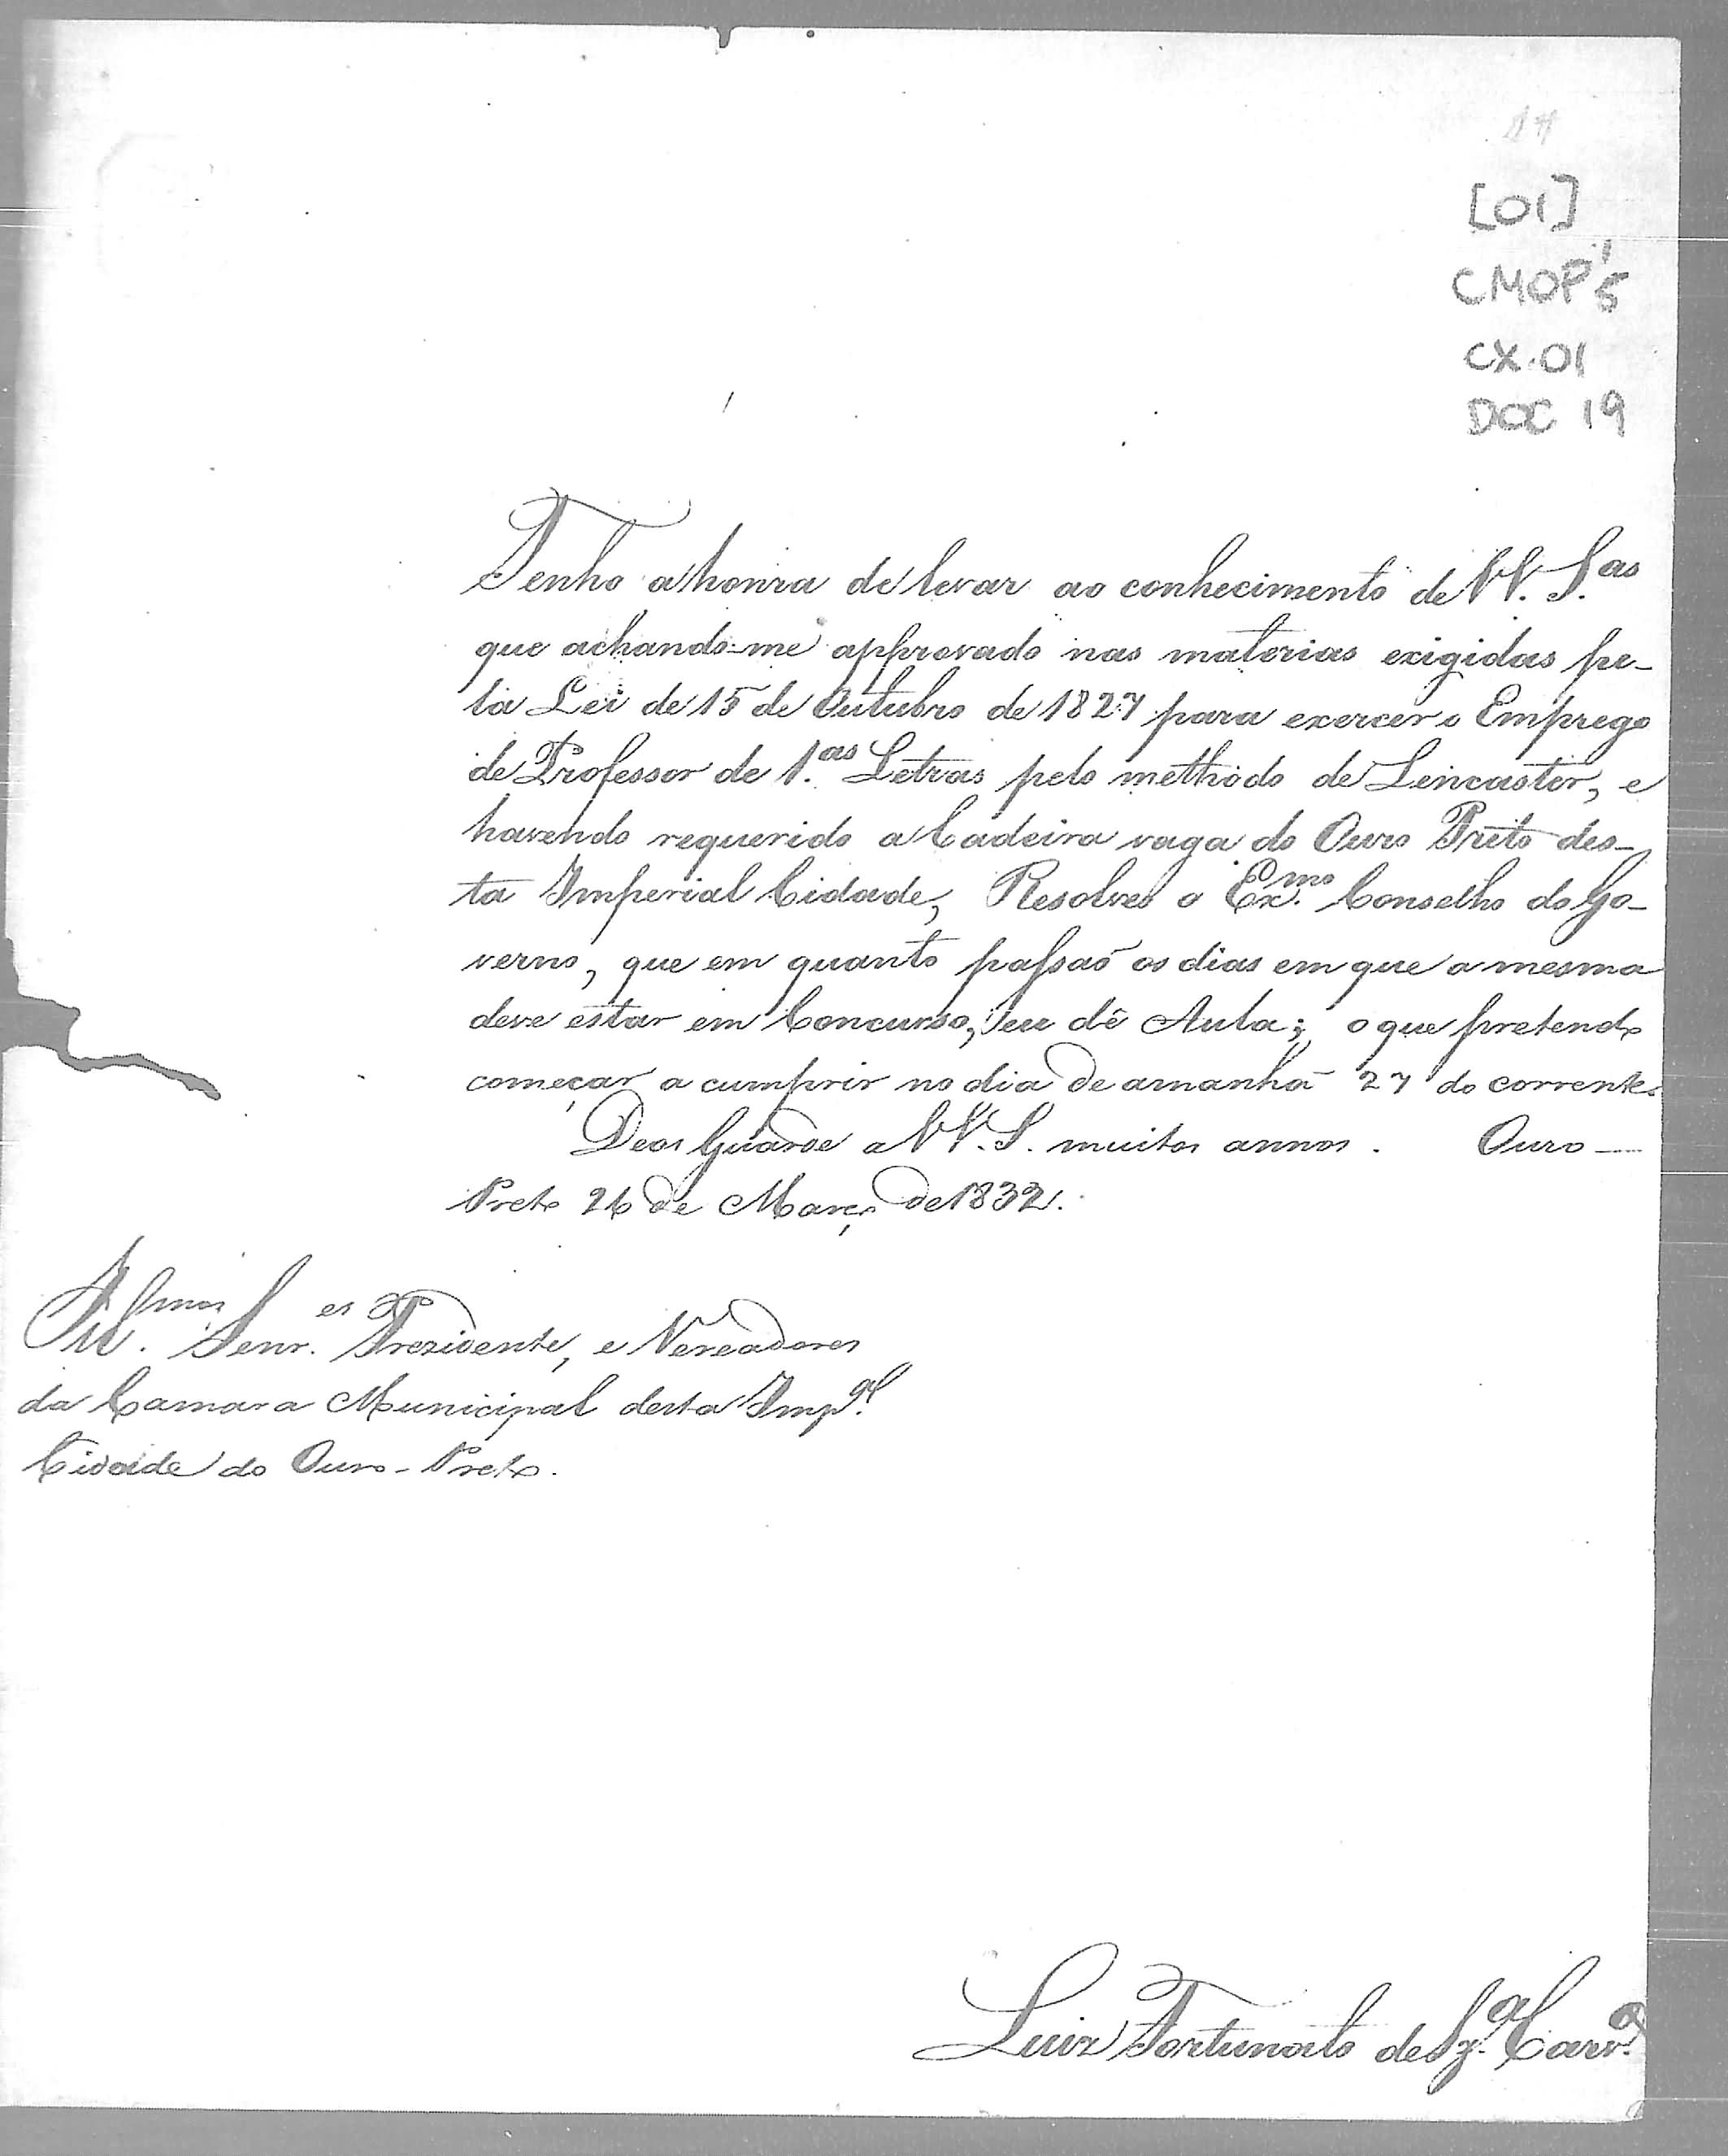 [01]
CMOP 5
CX.01
DOC 19
Tenho a honra de levar ao conhecimento de VV. S.as
que achando-me approvado nas materias exigidas pe-
la Lei de 15 de Outubro de 1827 para exercer o Emprego
de Professor de 1.as Letras pelo methodo de Lencaster, e
havendo requerido a Cadeira vaga do Ouro Preto des-
ta Imperial Cidade, Resolveo o Ex.mo Conselho do Go-
verno, que em quanto passaõ os dias em que a mesma
deve estar em Concurso, eu dê Aula; o que pretendo
começar a cumprir no dia de amanhã 27 do corrente.
Deos Guarde a VV. S. muitos annos. Ouro-
Preto 26 de Março de 1832.
Ill.mos Senr.es Prezidente, e Vereadores
da Camara Municipal desta Imp.al
Cidade do Ouro-Preto.
Luiz Fortunato de Sz.a Carv.o